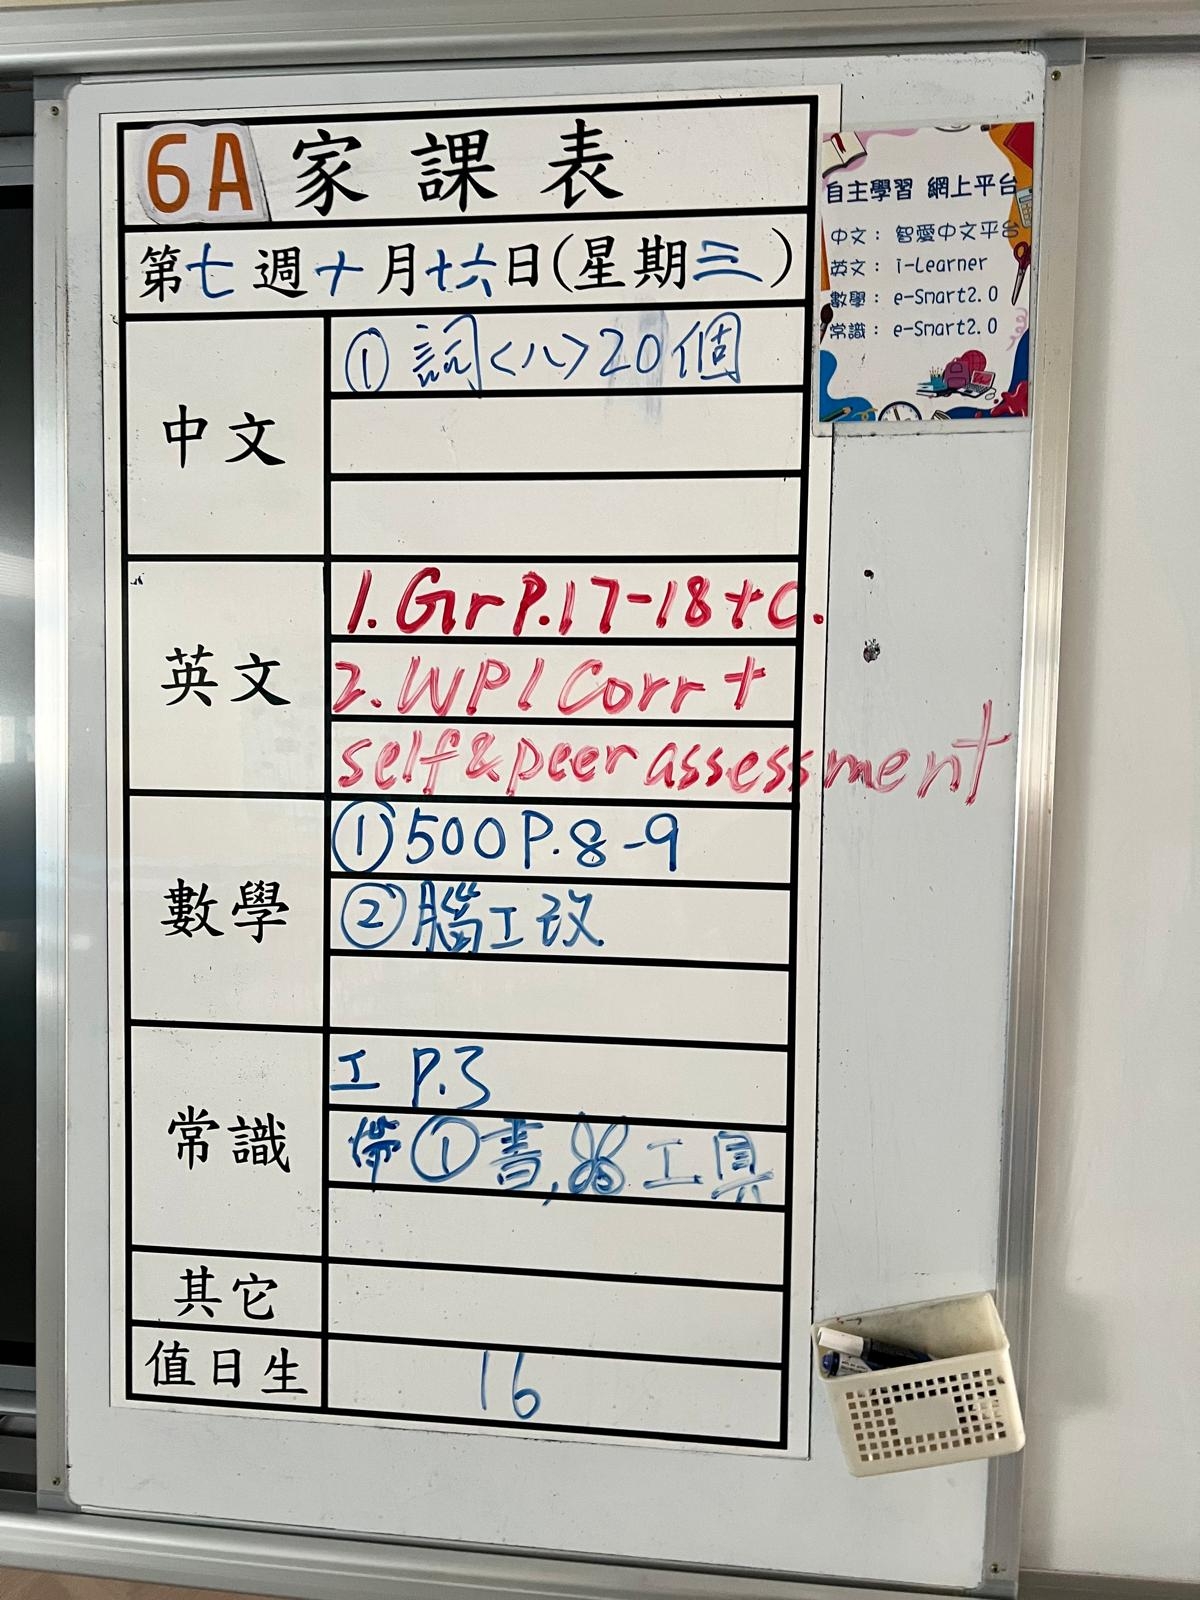 6A 家課表
第七週十月十六日(星期三)
中文
① 詞<八>20個
英文
1. Gr P.17-18+C.
2. WP1 Corr +
self & peer assessment
數學
① 500 P.8-9
② 腦工改
常識
工 P.3
帶①書, 工具
其它
值日生
16
自主學習 網上平台
中文： 智愛中文平台
英文： i-Learner
數學： e-Smart2.0
常識： e-Smart2.0